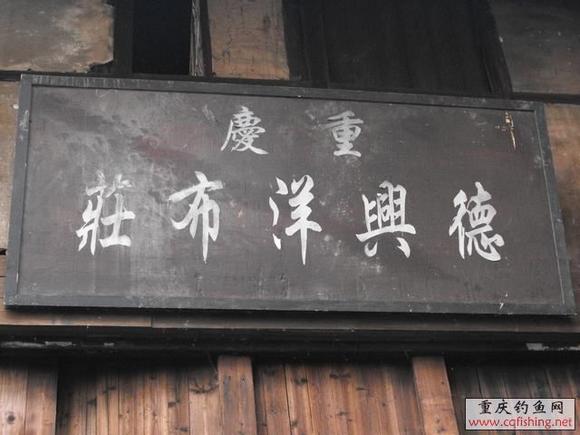 重慶
德興洋布莊
重庆钓鱼网
www.cqfishing.net